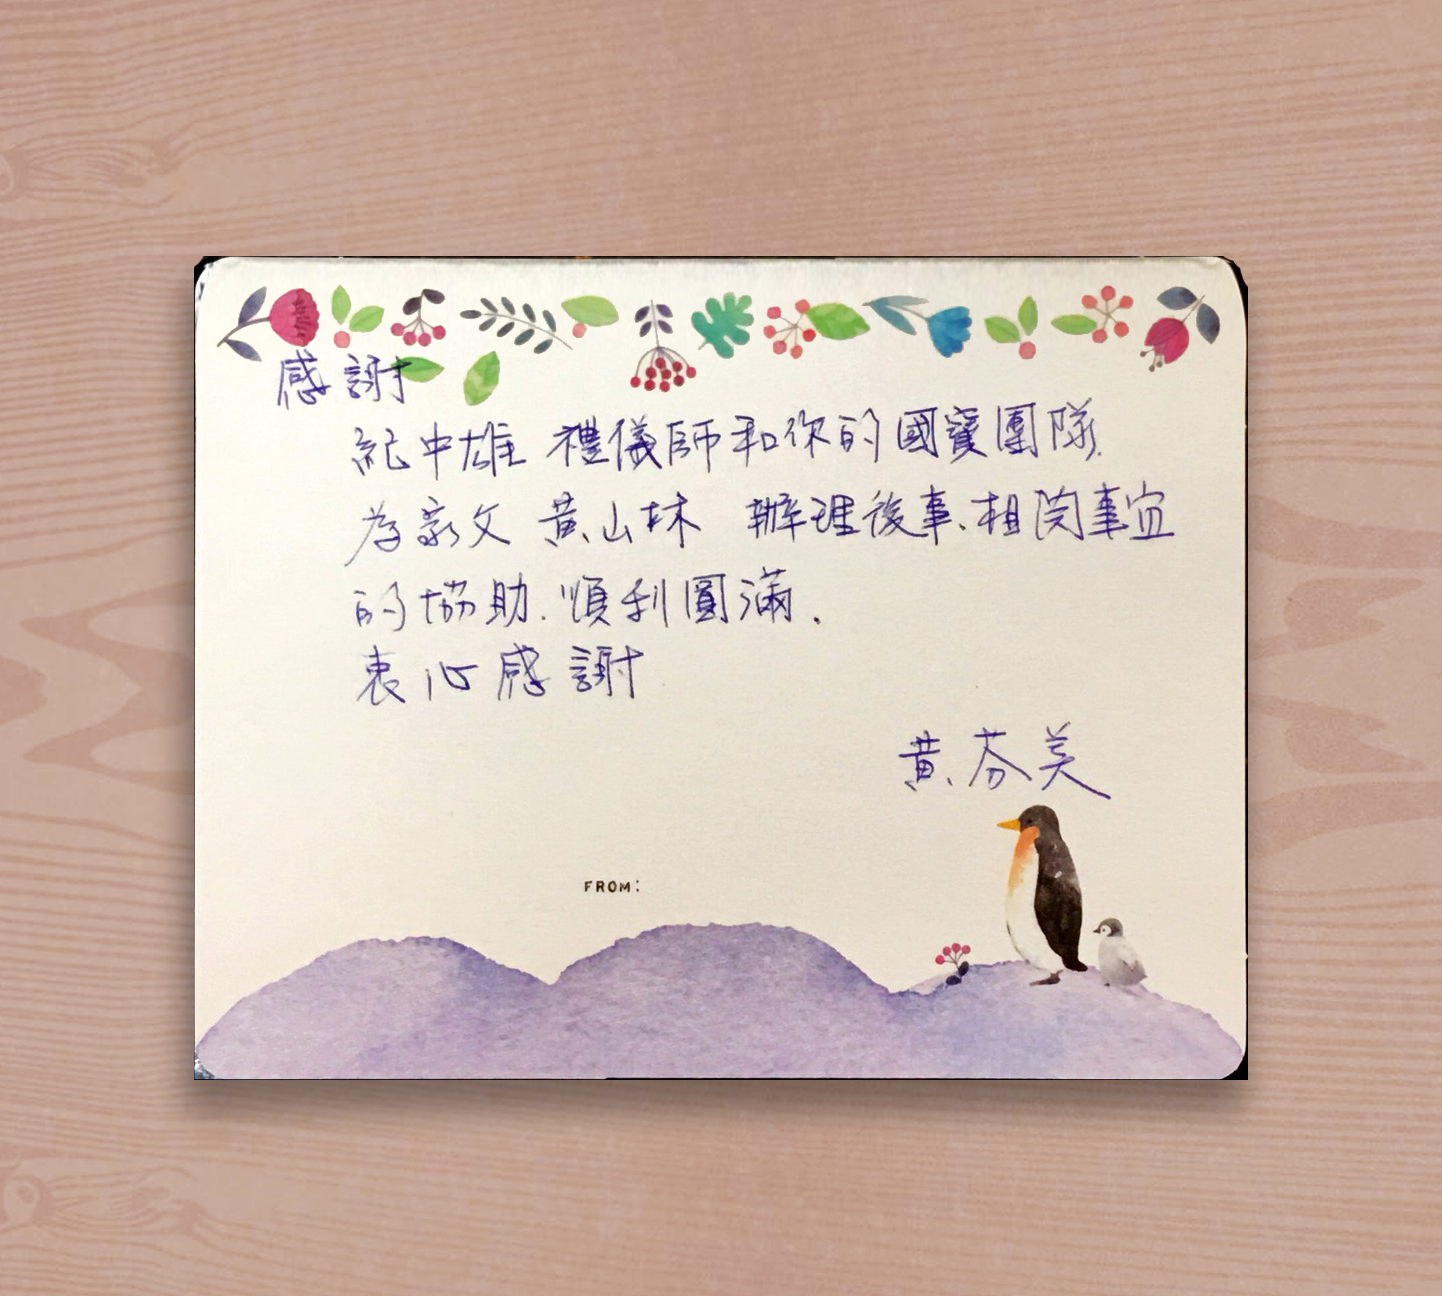 感謝
紀中雄 禮儀師和你的國寶團隊.
為家父 黃山林 辦理後事、相関事宜
的協助. 順利圓滿.
衷心感謝
黃芬美
FROM: